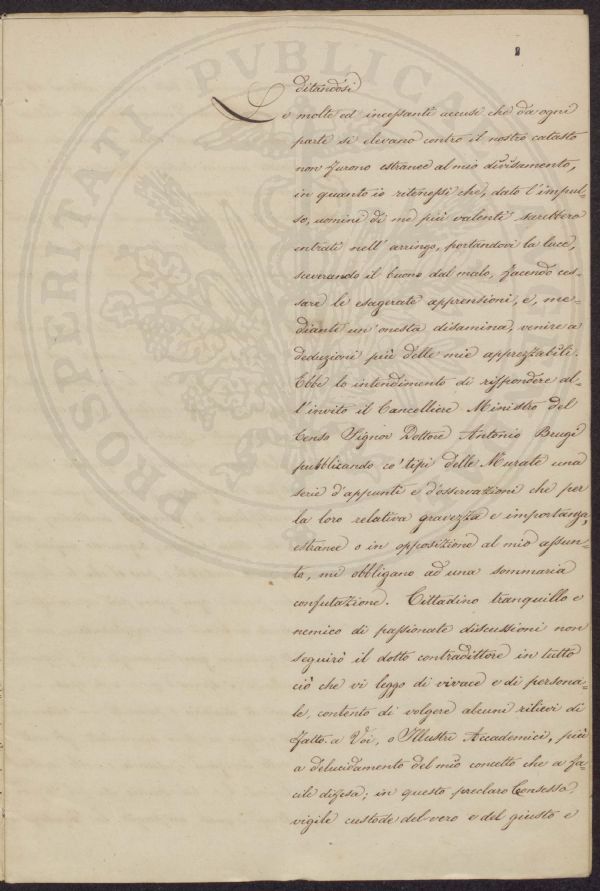 ditandosi
Le molte ed incessanti accuse che da ogni
parte si elevano contro il nostro catasto
non furono estranee al mio divisamento,
in quanto io ritenessi che, dato l'impul-
so, uomini di me più valenti sarebbero
entrati nell'arringo, portandovi la luce,
sceverando il buono dal malo, facendo ces-
sare le esagerate apprensioni, e, me-
diante un'onesta disamina, venire a
deduzioni più delle mie apprezzabili.
Ebbe lo intendimento di rispondere al-
l'invito il Cancelliere Ministro del
Censo Signor Dottore Antonio Brugi
pubblicando co' tipi delle Murate una
serie d'appunti e d'osservazioni che per
la loro relativa gravezza e importanza,
estranee o in opposizione al mio assun-
to, mi obbligano ad una sommaria
confutazione. Cittadino tranquillo e
nemico di passionate discussioni non
seguirò il dotto contradittore in tutto
ciò che vi leggo di vivace e di persona-
le, contento di volgere alcuni rilievi di
fatto a Voi, o Illustri Accademici, più
a delucidamento del mio concetto che a fa-
cile difesa; in questo preclaro Consesso,
vigile custode del vero e del giusto e
PROSPERITATI PVBLICAE